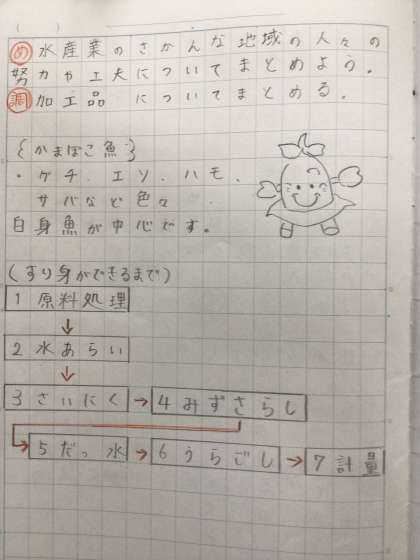 (　　)
め 水産業のさかんな地域の人々の
努力や工夫についてまとめよう。
調 加工品　についてまとめる。
{かまぼこ魚}
・グチ、エソ、ハモ、
サバなど色々
白身魚が中心です。
(すり身ができるまで)
1 原料処理
↓
2 水あらい
↓
3 さいにく → 4 みずさらし
→ 5 だっ水 → 6 うらごし → 7 計量